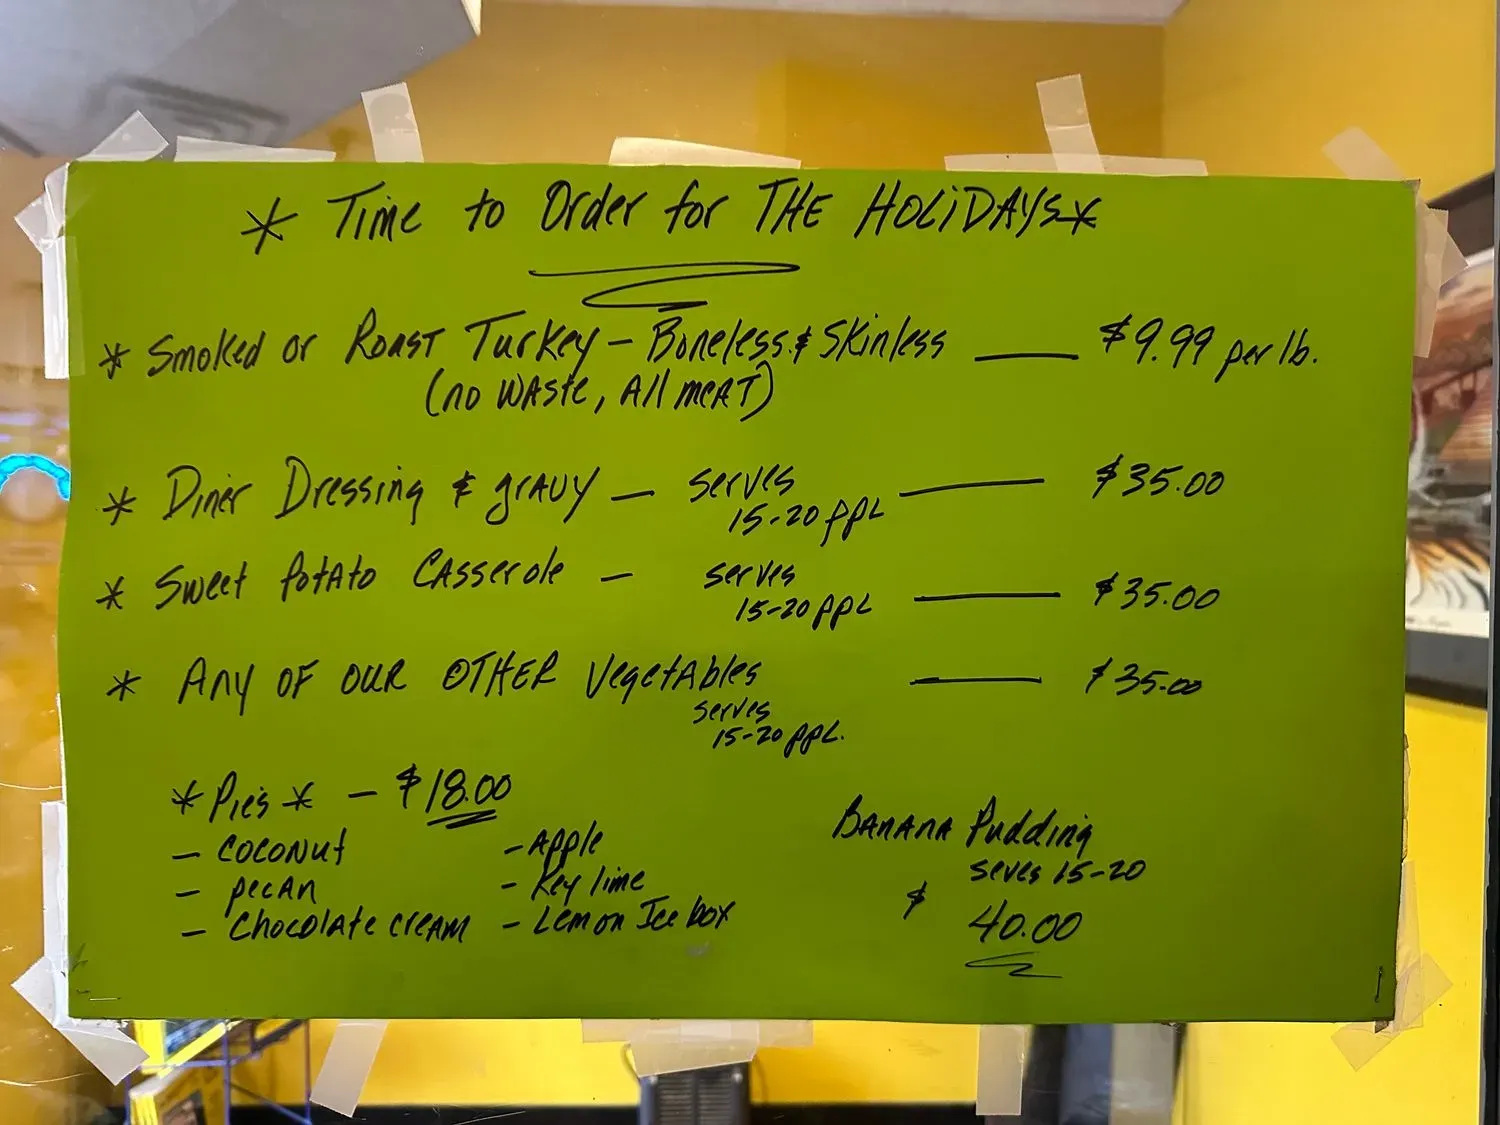 * Time to Order for THE HOLiDAYS *
* Smoked or Roast Turkey – Boneless & Skinless — $9.99 per lb.
(no waste, All meat)
* Diner Dressing & gravy — serves 15-20 ppl — $35.00
* Sweet Potato Casserole – serves 15-20 ppl — $35.00
* Any of our OTHER Vegetables — $35.00
serves
15-20 ppl.
* Pie's * – $18.00
– Coconut – Apple
– pecan – Key lime
– Chocolate cream – Lemon Ice box
Banana Pudding
seves 15-20
$ 40.00